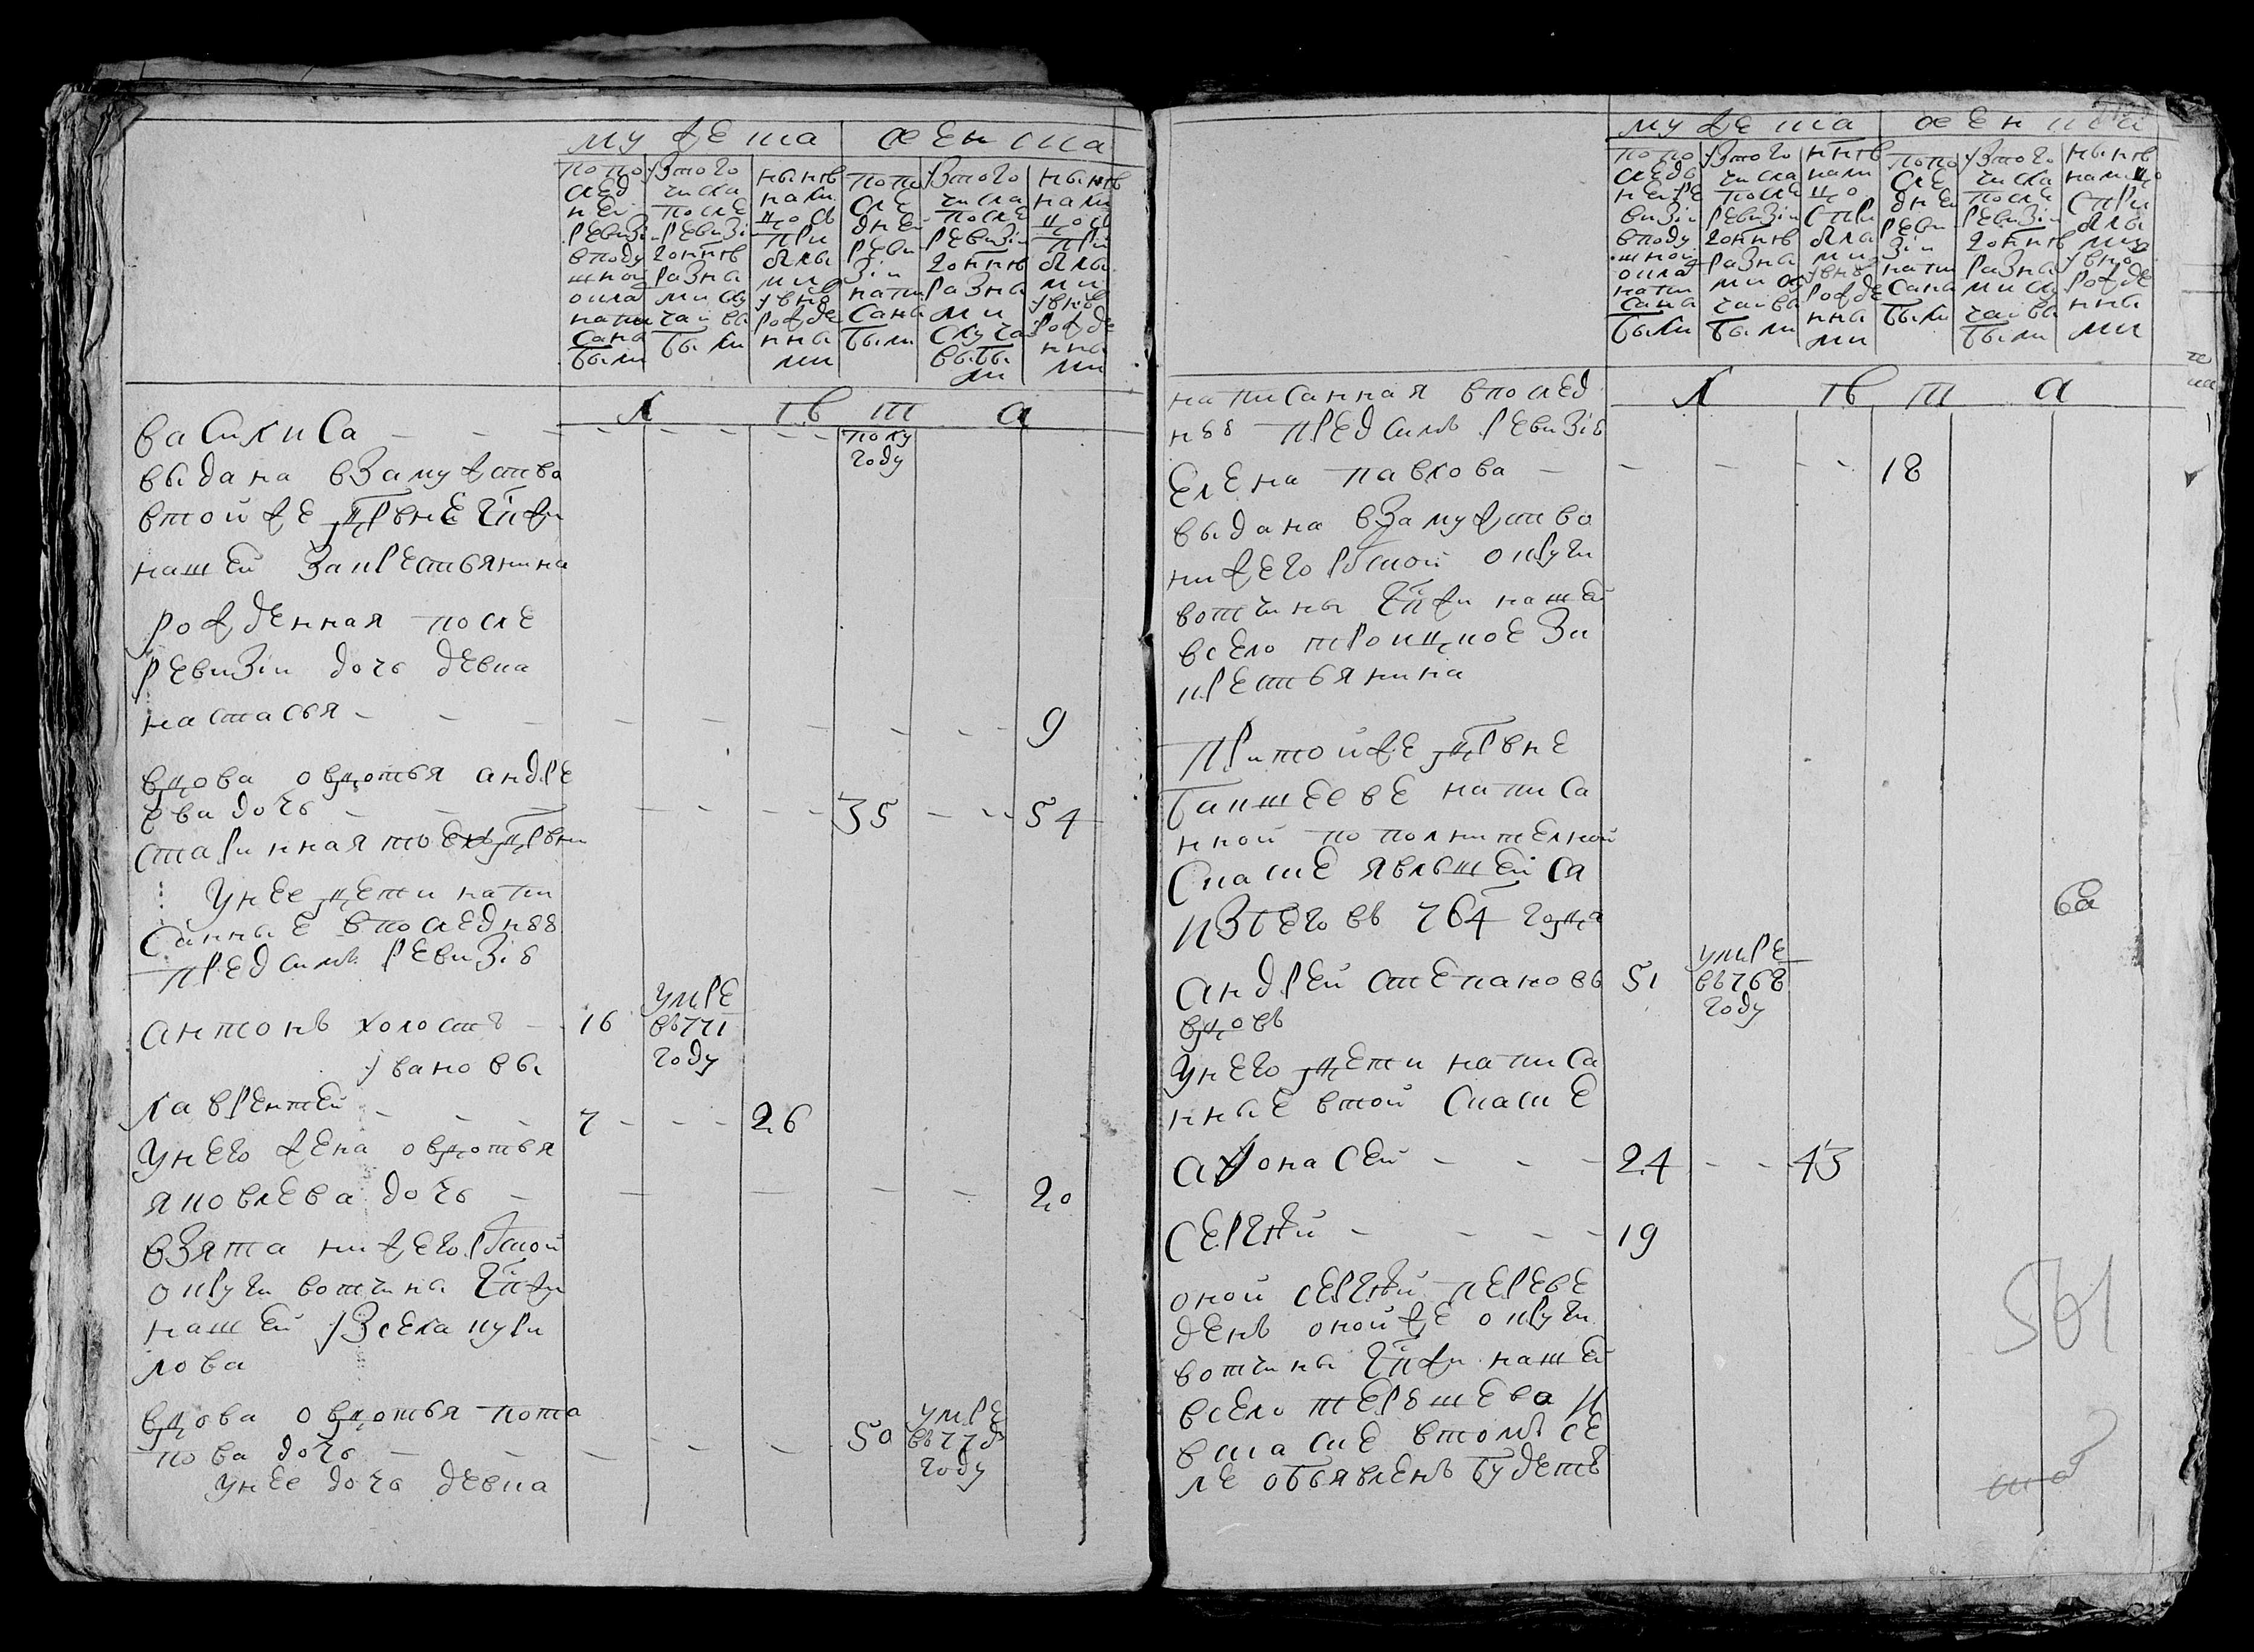 мужеска женска
попо
след
ней
ревизи
вподу
шной
окла
напи
сана
были
изтого
числа
после
ревизи
гоннѣ
разны
ми слу
чаи вы
были
нынѣ
нали
цо съ
при
былы
ми
и внов
рожде
нны
ми
попо
сле
дней
реви
зіи
напи
саны
были
изтого
числа
после
ревизіи
гоннѣ
разны
ми
случа
выбы
ли
нынѣ
нали
цо съ
при
былы
ми
и вновь
рожде
нны
ми
л ѣ т а
василиса - - - - - - - полу
году
выдана взамужство
втойже дрвне Гдпжи
нашей закрестьянина
рожденная после
ревизіи дочь девка
настасья - - - - - - - - 9
вдова овдотья андре
ева дочь - - - - - - 35 - - 54
старинная тоежъ дрвни
Унее дети напи
санные впоследнюю
пред симъ ревизію
антонъ холостъ - 16 умре
въ771
году
ивановы
лаврентей - - - 7 - - - 26
Унего жена овдотья
яковлева дочь - - - - - 20
взята нижегордской
округи вотчины Гдпжи
нашей изсела кури
лова
вдова овдотья пота
пова дочь - - - - - 50 умре
въ778
году
унее дочь девка
мужеска женска
попо
следе
ней ре
визіи
вподу
шной
оклад
напи
сана
были
изтого
числа
после
ревизіи
гоннѣ
разны
ми слу
чаи вы
были
ннѣ
нали
цо
с при
былы
ми
и вно
рожде
нны
ми
попо
сле
дней
реви
зіи
напи
саны
были
изтого
числа
после
ревизіи
гоннѣ
разны
ми слу
чаи вы
были
нынѣ
налицо
с при
былы
ми
и вно
рожде
нны
ми
л ѣ т а
написанная вполед
нюю пред симъ ревизію
Елена павлова - - - - - 18
выдана взамужство
нижегордской округи
вотчины Гдпжи нашей
всело троицкое за
крестьянина
Притойже дрвне
бакшееве написа
нной пополнителной
Скаске явльшейся
изБего въ 764 года
андрей степановъ 51 умре
въ768
году
вдовъ
Унего дети написа
нные втой Скаске
афонасей - - - 24 - - 43
сергѣй - - - - 19
оной сергѣй переве
денъ оной же округи
вотчины Гдпжи нашей
всело терюшево и
вскаске втомъ се
ле объявленъ будетъ